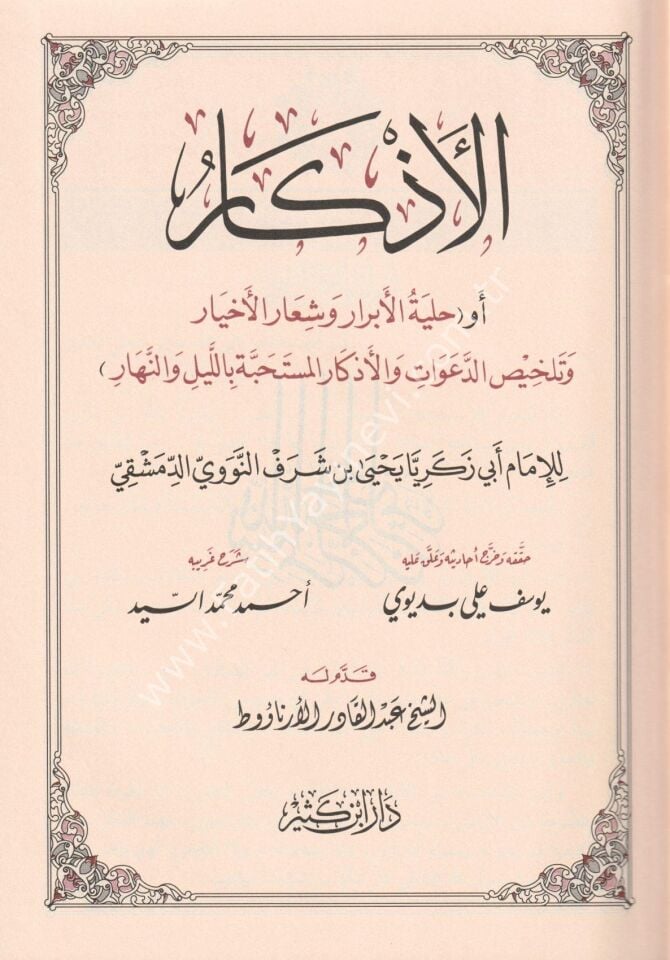 الأَذكَارُ
أو (حليَةُ الأبرار وَشِعَار الأَخيَار
وَتَلخِيْص الدَّعَوَاتِ وَالأَذكَار المستَحَبَّة بِاللَّيلِ وَالنَّهَارِ)
لِلإِمَام أَبي زَكَرِيَّا يَحْيَىٰ بن شَرَفْ النَّوَوِيّ الدِّمَشْقِيّ
حقّقه وَخرَّج أحَاديثه وَعَلَّق عَليه
يوسف علي بديوي
شَرَح غَريبه
أحمد محمّد السيّد
قَدَّم لَه
الشيخ عَبْد القَادر الأرناؤوط
دَار ابْن كَثِيْر